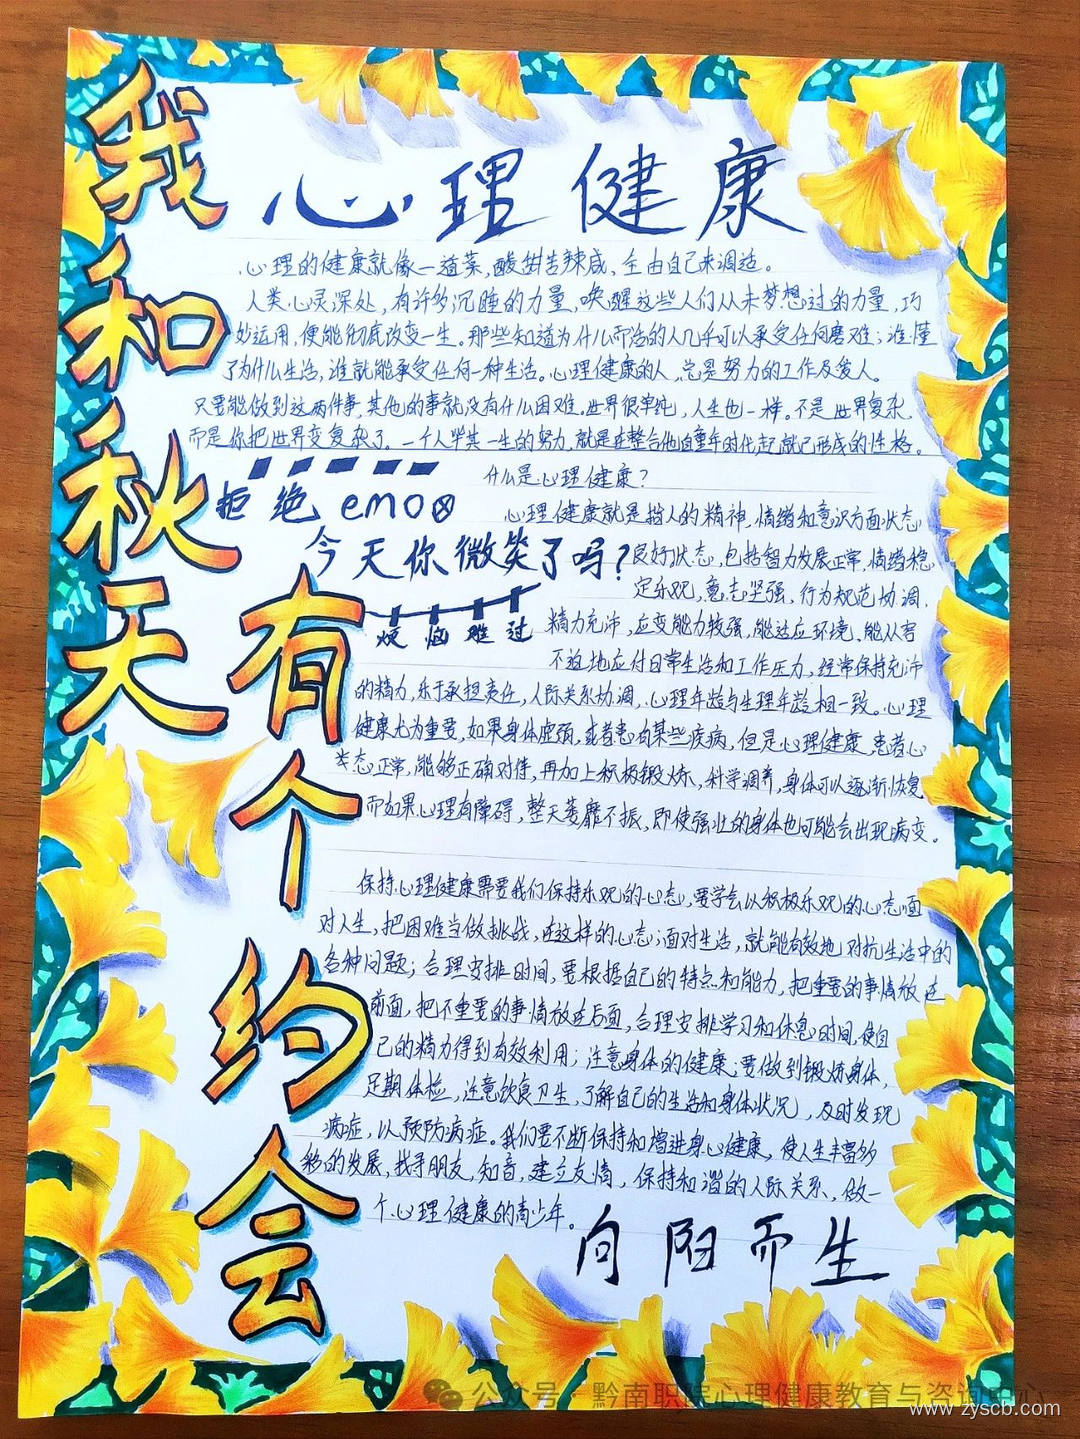 我和秋天
有个约会
心理健康
心理的健康就像一道菜,酸甜苦辣咸、全由自己来调造。
人类心灵深处,有许多沉睡的力量,唤醒这些人们从未梦想过的力量,巧
妙运用,便能彻底改变一生。那些知道为什么而活的人几乎可以承受任何磨难;谁懂
了为什么生活,谁就能承受任何一种生活。心理健康的人,总是努力的工作及爱人。
只要能做到这两件事,其他的事就没有什么困难。世界很单纯,人生也一样。不是世界复杂,
而是你把世界变复杂了。一个人毕其一生的努力,就是在整合他自童年时代起就已形成的性格。
什么是心理健康?
拒绝emo
今天你微笑了吗?
烦恼难过
心理健康就是指人的精神,情绪和意识方面状态
良好状态,包括智力发展正常,情绪稳
定乐观,意志坚强,行为规范协调,
精力充沛,应变能力较强,能适应环境,能从容
不迫地应付日常生活和工作压力,经常保持充沛
的精力,乐于承担责任,人际关系协调,心理年龄与生理年龄相一致。心理
健康尤为重要,如果身体虚弱,或者患有某些疾病,但是心理健康,患者心
态正常,能够正确对待,再加上积极锻炼,科学调养,身体可以逐渐恢复
而如果心理有障碍,整天萎靡不振,即使强壮的身体也可能会出现病变。
保持心理健康需要我们保持乐观的心态,要学会以积极乐观的心态面
对人生,把困难当做挑战,在这样的心态面对生活,就能有效地对抗生活中的
各种问题;合理安排时间,要根据自己的特点和能力,把重要的事情放在
前面,把不重要的事情放在后面,合理安排学习和休息时间,使自
己的精力得到有效利用;注意身体的健康;要做到锻炼身体,
定期体检,注意饮食卫生,了解自己的生活和身体状况,及时发现
病症,以预防病症。我们要不断保持和增进身心健康,使人生丰富多
彩的发展,找寻朋友,知音,建立友情,保持和谐的人际关系,做一
个心理健康的青少年。
向阳而生
公众号·黔南职院心理健康教育与咨询中心
www.zyscb.com